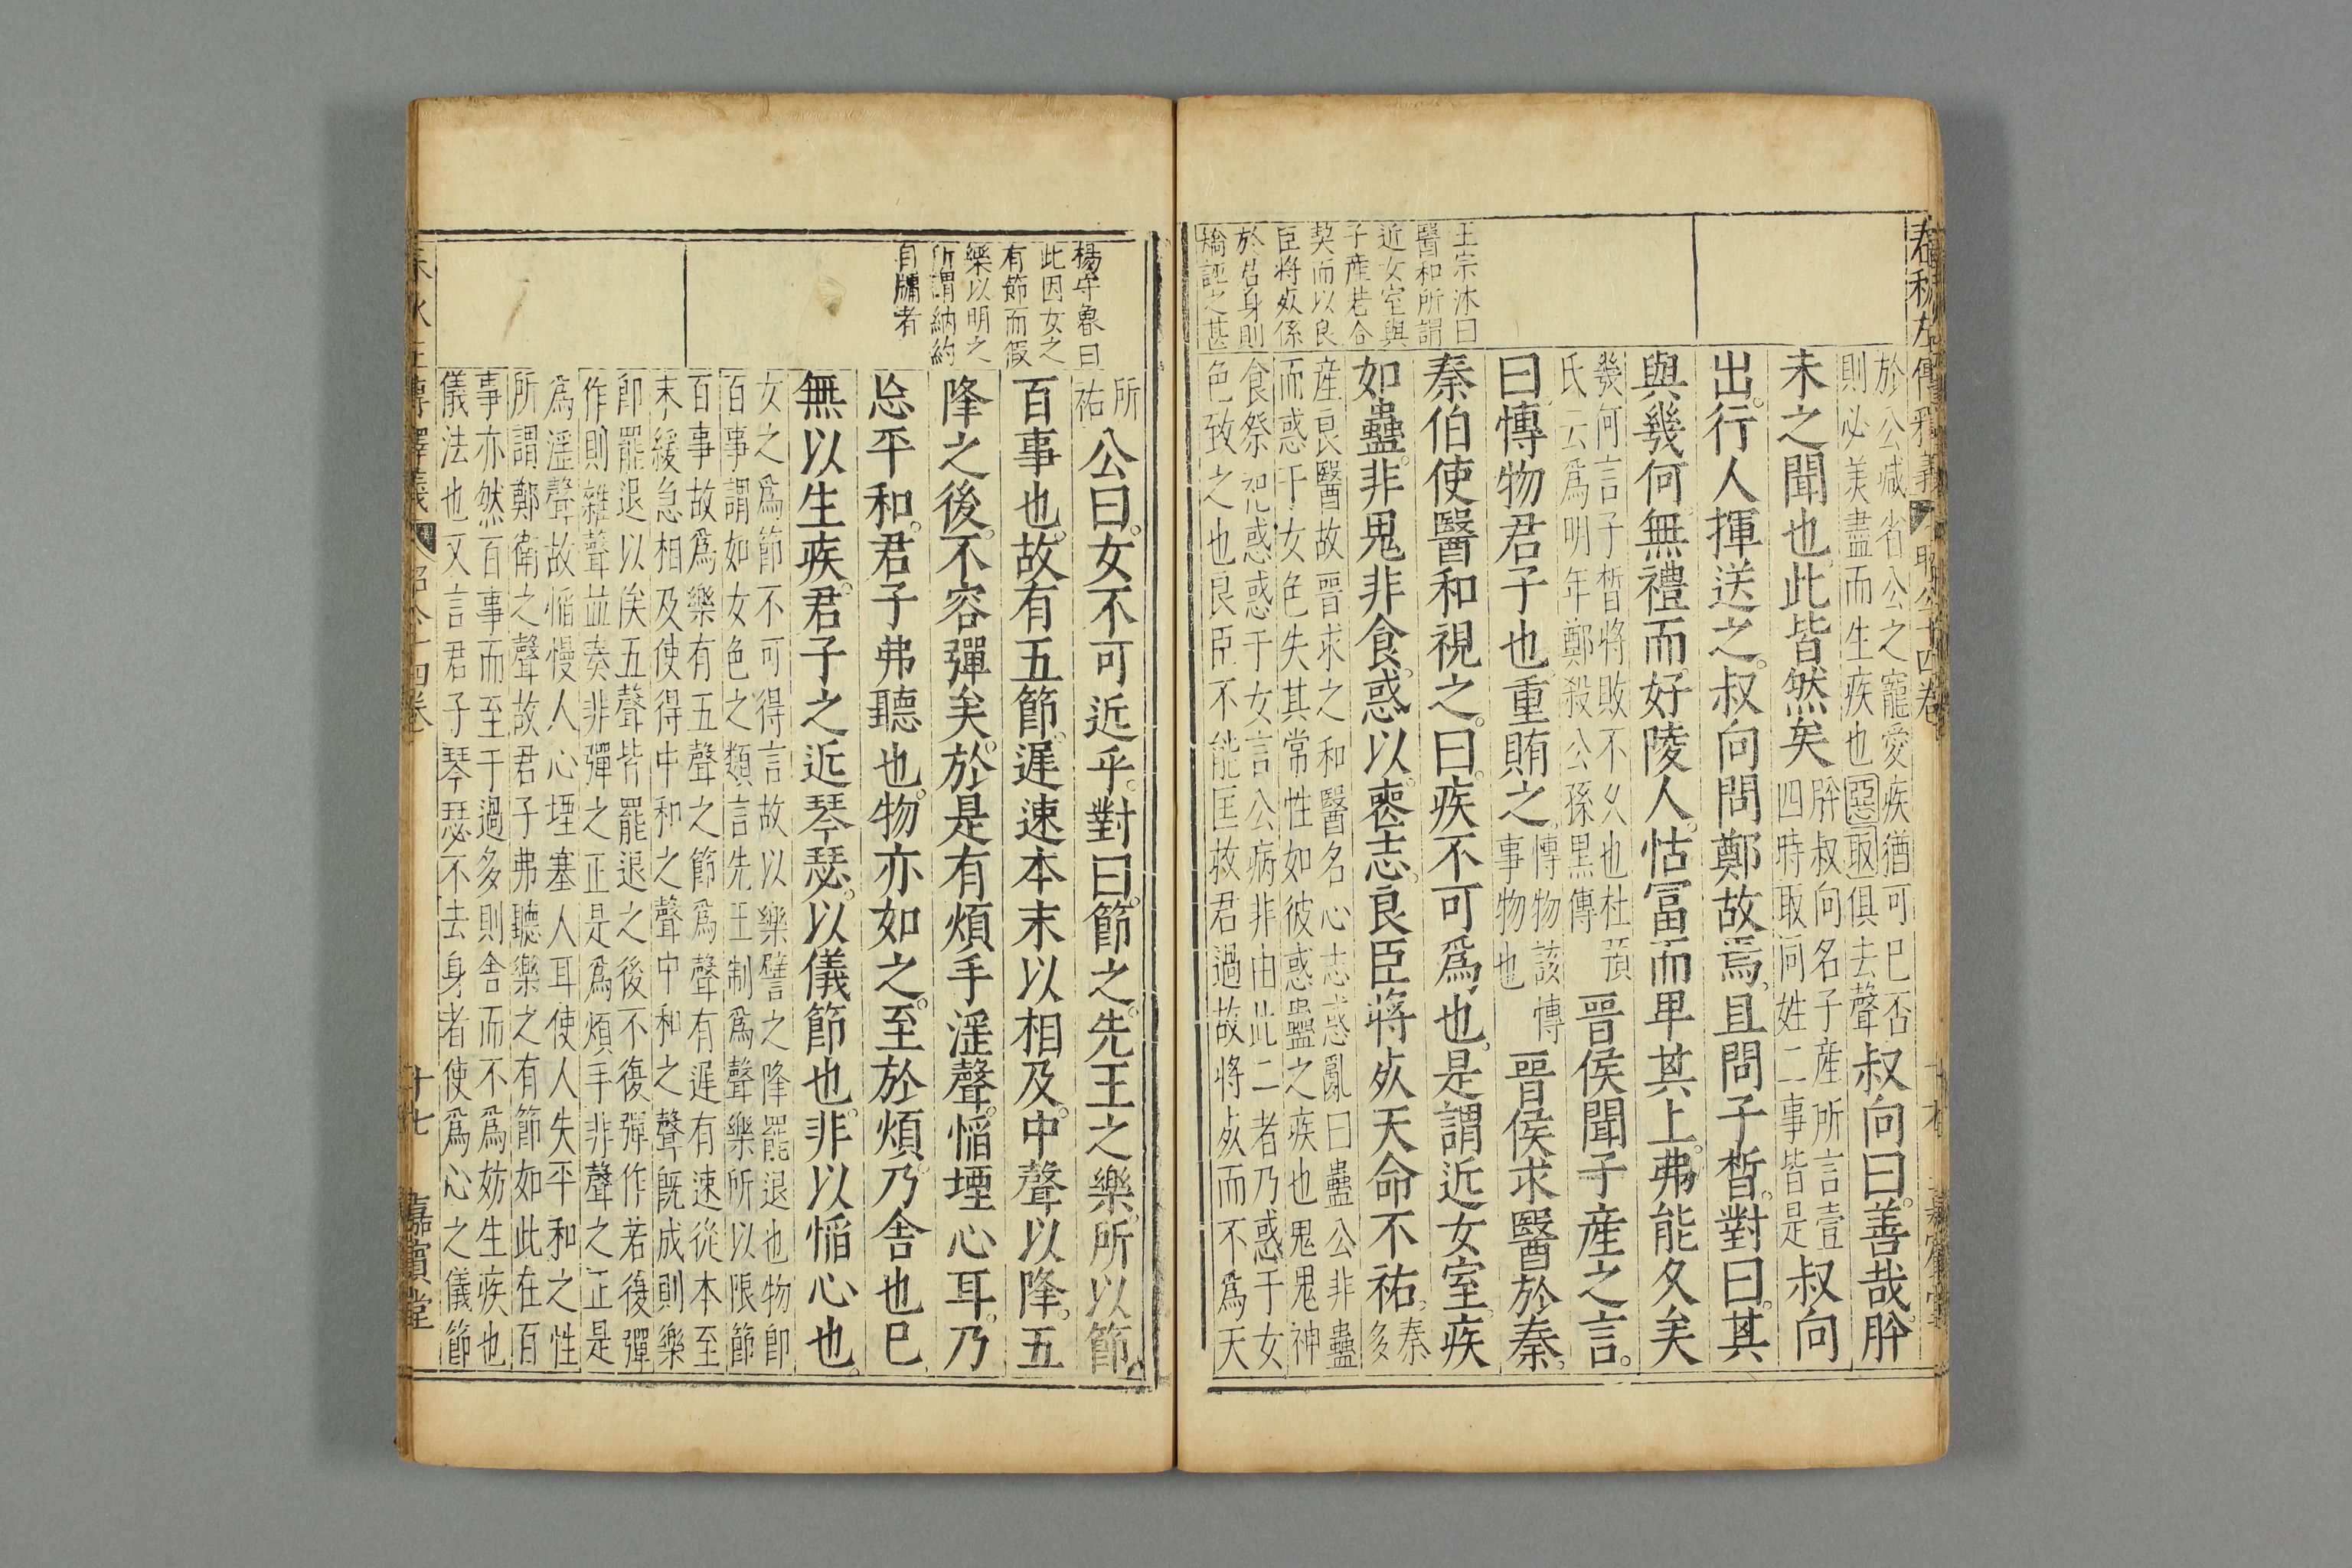 春秋左傳釋義 昭公十四卷 嘉賓堂
於公咸省公之寵愛疾猶可已否
則必美盡而生疾也惡取俱去聲
叔向曰善哉肸
未之聞也此皆然矣
肸叔向名子產所言壹
四時取同姓二事皆是
叔向
出行人揮送之叔向問鄭故焉且問子晳對曰其
與幾何無禮而好陵人怙富而卑其上弗能久矣
幾何言子晳將敗不久也杜預
氏云爲明年鄭殺公孫黑傳
晉侯聞子産之言
曰慱物君子也重賄之
慱物該慱
事物也
晉侯求醫於秦
秦伯使醫和視之曰疾不可爲也是謂近女室疾
如蠱非鬼非食惑以喪志良臣將死天命不祐
秦多
産良醫故晉求之和醫名心志惑亂曰蠱公非蠱
而惑于女色失其常性如彼惑蠱之疾也鬼鬼神
食祭祀惑惑于女言公病非由此二者乃惑于女
色致之也良臣不能匡救君過故將死而不爲天
王宗沐曰
醫和所謂
近女室與
子産若合
契而以良
臣將死係
於君身則
矯誣之甚
所
祐
公曰女不可近乎對曰節之先王之樂所以節
百事也故有五節遲速本末以相及中聲以降五
降之後不容彈矣於是有煩手淫聲慆堙心耳乃
忘平和君子弗聽也物亦如之至於煩乃舍也已
無以生疾君子之近琴瑟以儀節也非以慆心也
女之爲節不可得言故以樂譬之降罷退也物卽
百事謂如女色之類言先王制爲聲樂所以限節
百事故爲樂有五聲之節爲聲有遲有速從本至
末緩急相及使得中和之聲中和之聲旣成則樂
卽罷退以俟五聲皆罷退之後不復彈作若復彈
作則雜聲並奏非彈之正是爲煩手非聲之正是
爲淫聲故慆慢人心堙塞人耳使人失平和之性
所謂鄭衛之聲故君子弗聽樂之有節如此在百
事亦然百事而至于過多則舍而不爲妨生疾也
儀法也又言君子琴瑟不去身者使爲心之儀節
楊守魯曰
此因女之
有節而假
樂以明之
所謂納約
自牖者
春秋左傳釋義 昭公十四卷 十七 嘉賓堂